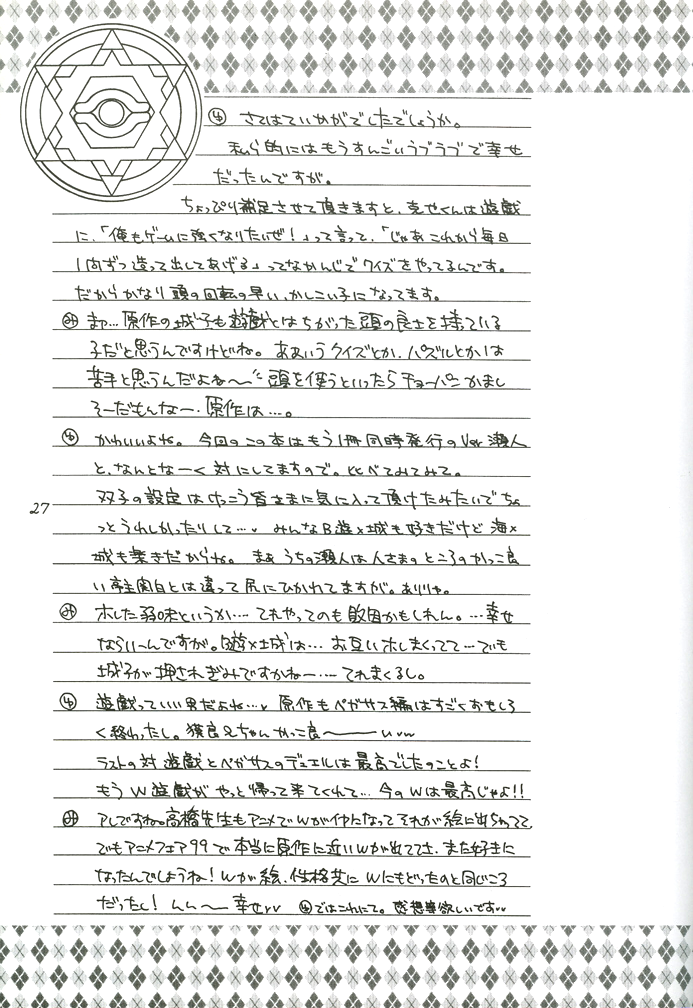 ㋴ さてはていかがでしたでしょうか。
私ら的にはもうすんごいラブラブで幸せ
だったんですが。
ちょっぴり補足させて頂きますと、克也くんは遊戯
に、「俺もゲームに強くなりたいぜ!」って言って、「じゃあこれから毎日
1問ずつ造って出してあげる」ってなかんじでクイズをやってるんです。
だからかなり頭の回転の早い、かしこい子になってます。
㋯ まア…原作の城ノ子も遊戯とはちがった頭の良さを持ている
子だと思うんですけどね。ああいうクイズとか、パズルとかは
苦手と思うんだよね〜 頭を使うといったらチョーパンかまし
そーだもんなー、原作は…。
かわいいよね。今回のこの本はもう1冊同時発行のVer瀬人
と、なんとなーく対にしてますので。比べてみてみて。
27
双子の設定はけっこう皆さまに気に入って頂けたみたいでちょ
っとうれしかったりして…♥ みんなB遊×城も好きだけど海×
城も好きだからね。まぁうちの瀬人は人さまのところのかっこ良
い亭主関白とは違って尻にひかれてますが。ありゃ。
㋯ ホレた弱味というか…てれやってのも敗因かもしれん。…幸せ
ならい〜んですが。B遊×城は…お互いホレまくってて…でも
城ノ子が押されぎみですかねー…てれまくるし。
遊戯っていい男だよね…♥ 原作もペガサス編はすごくおもしろ
く終わったし。獏良&ちゃんかっこ良〜いvv
ラストの対遊戯とペガサスのデュエルは最高でしたのことよ!
もうW遊戯がやっと帰って来てくれて…今のWは最高じゃよ!!
㋯ アレですね。高橋先生もアニメでWが仲になってそれが絵に出られてて、
でもアニメフェア99で本当に原作に近いWが出ててさ、また好きに
なったんでしょうね!Wが絵、性格共にWにもどったのと同じころ
だったし!んん〜幸せvv ㋴ではこれにて。感想等欲しいですvv